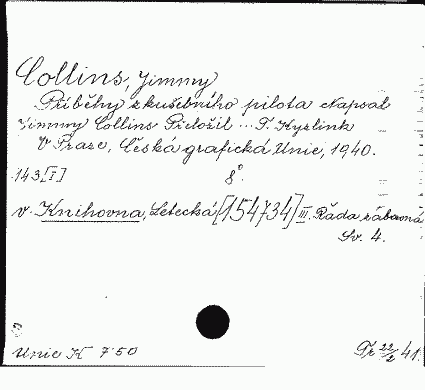 Collins, Jimmy
Příběhy zkušebního pilota Napsal
Jimmy Collins Přeložil ... F. Kyzlink
V Praze, Česká grafická Unie, 1940.
143[I] 8°.
v Knihovna, Letecká [154734] III. Řada zábavná
Sv. 4.
Unie K 7.50 Př 22/2 41.